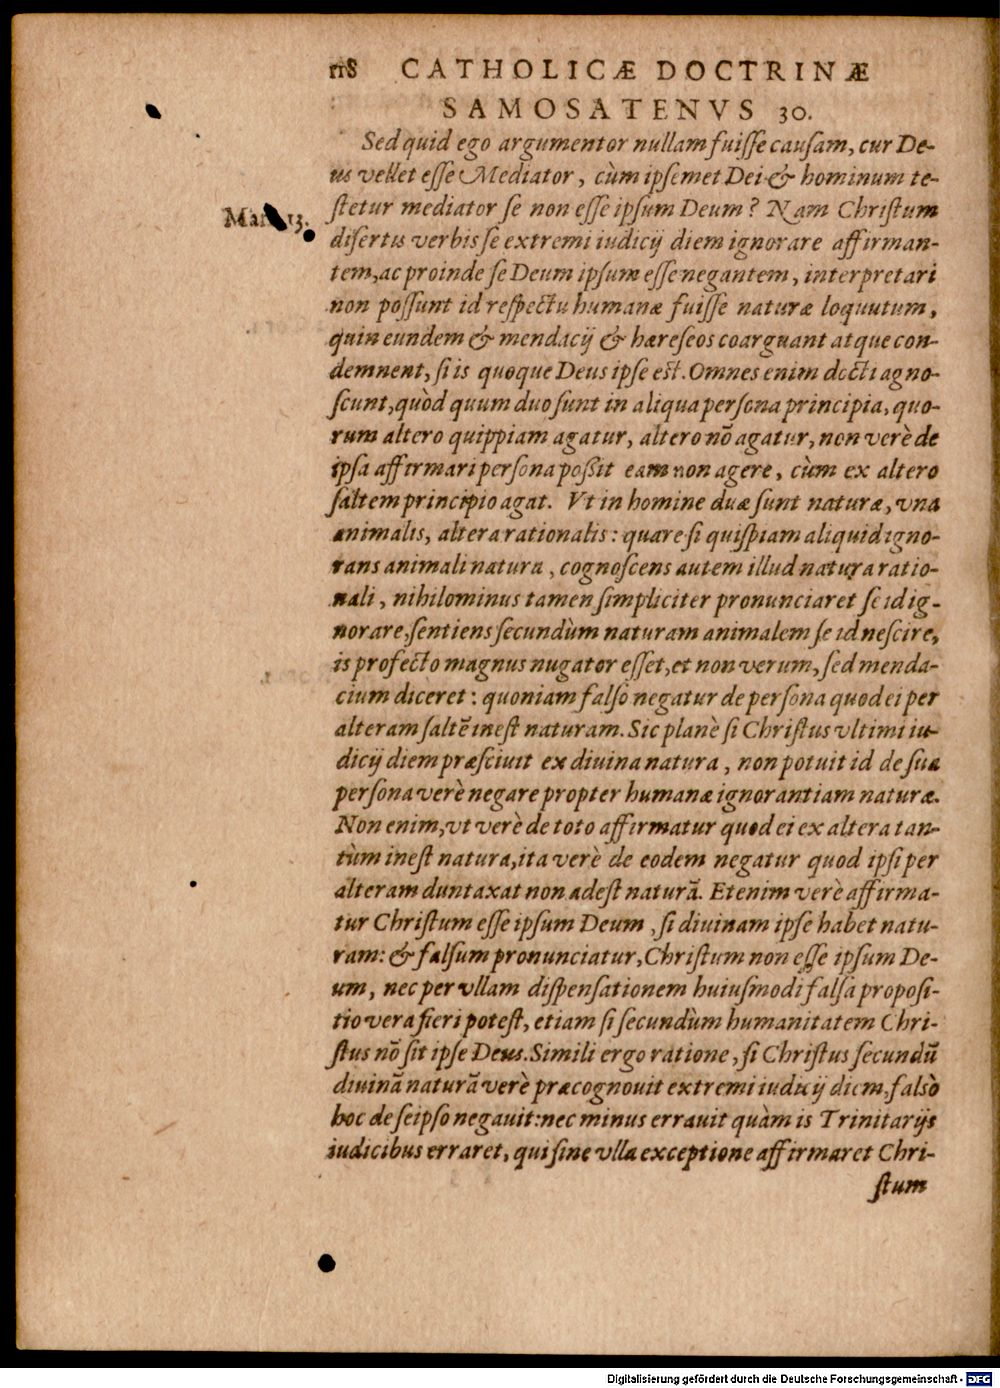 118 CATHOLICÆ DOCTRINÆ
SAMOSATENVS 30.
Sed quid ego argumentor nullam fuiſſe cauſam, cur De-
us vellet eſſe Mediator, cùm ipſemet Dei & hominum te-
Mar. 13.
ſtetur mediator ſe non eſſe ipſum Deum? Nam Chriſtum
diſertis verbis ſe extremi iudicij diem ignorare affirman-
tem, ac proinde ſe Deum ipſum eſſe negantem, interpretari
non poſſunt id reſpectu humanæ fuiſſe naturæ loquutum,
quin eundem & mendacij & hæreſeos coarguant atque con-
demnent, ſi is quoque Deus ipſe eſt. Omnes enim docti agno-
ſcunt, quòd quum duo ſunt in aliqua perſona principia, quo-
rum altero quippiam agatur, altero nō agatur, non verè de
ipſa affirmari perſona poßit eam non agere, cùm ex altero
ſaltem principio agat. Vt in homine duæ ſunt naturæ, vna
animalis, altera rationalis: quare ſi quiſpiam aliquid igno-
rans animali natura, cognoſcens autem illud natura ratio-
nali, nihilominus tamen ſimpliciter pronunciaret ſe id ig-
norare, ſentiens ſecundùm naturam animalem ſe id neſcire,
is profecto magnus nugator eſſet, et non verum, ſed menda-
cium diceret: quoniam falſo negatur de perſona quod ei per
alteram ſaltē ineſt naturam. Sic planè ſi Chriſtus vltimi iu-
dicij diem præſciuit ex diuina natura, non potuit id de ſua
perſona verè negare propter humanæ ignorantiam naturæ.
Non enim, vt verè de toto affirmatur quod ei ex altera tan-
tùm ineſt natura, ita verè de eodem negatur quod ipſi per
alteram duntaxat non adeſt naturā. Etenim verè affirma-
tur Chriſtum eſſe ipſum Deum, ſi diuinam ipſe habet natu-
ram: & falſum pronunciatur, Chriſtum non eſſe ipſum De-
um, nec per vllam diſpenſationem huiuſmodi falſa propoſi-
tio vera fieri poteſt, etiam ſi ſecundùm humanitatem Chri-
ſtus nō ſit ipſe Deus. Simili ergo ratione, ſi Chriſtus ſecundū
diuinā naturā verè præcognouit extremi iudicij diem, falsò
hoc de ſeipſo negauit: nec minus errauit quàm is Trinitarijs
iudicibus erraret, qui ſine vlla exceptione affirmaret Chri-
ſtum
Digitalisierung gefördert durch die Deutsche Forschungsgemeinschaft - DFG